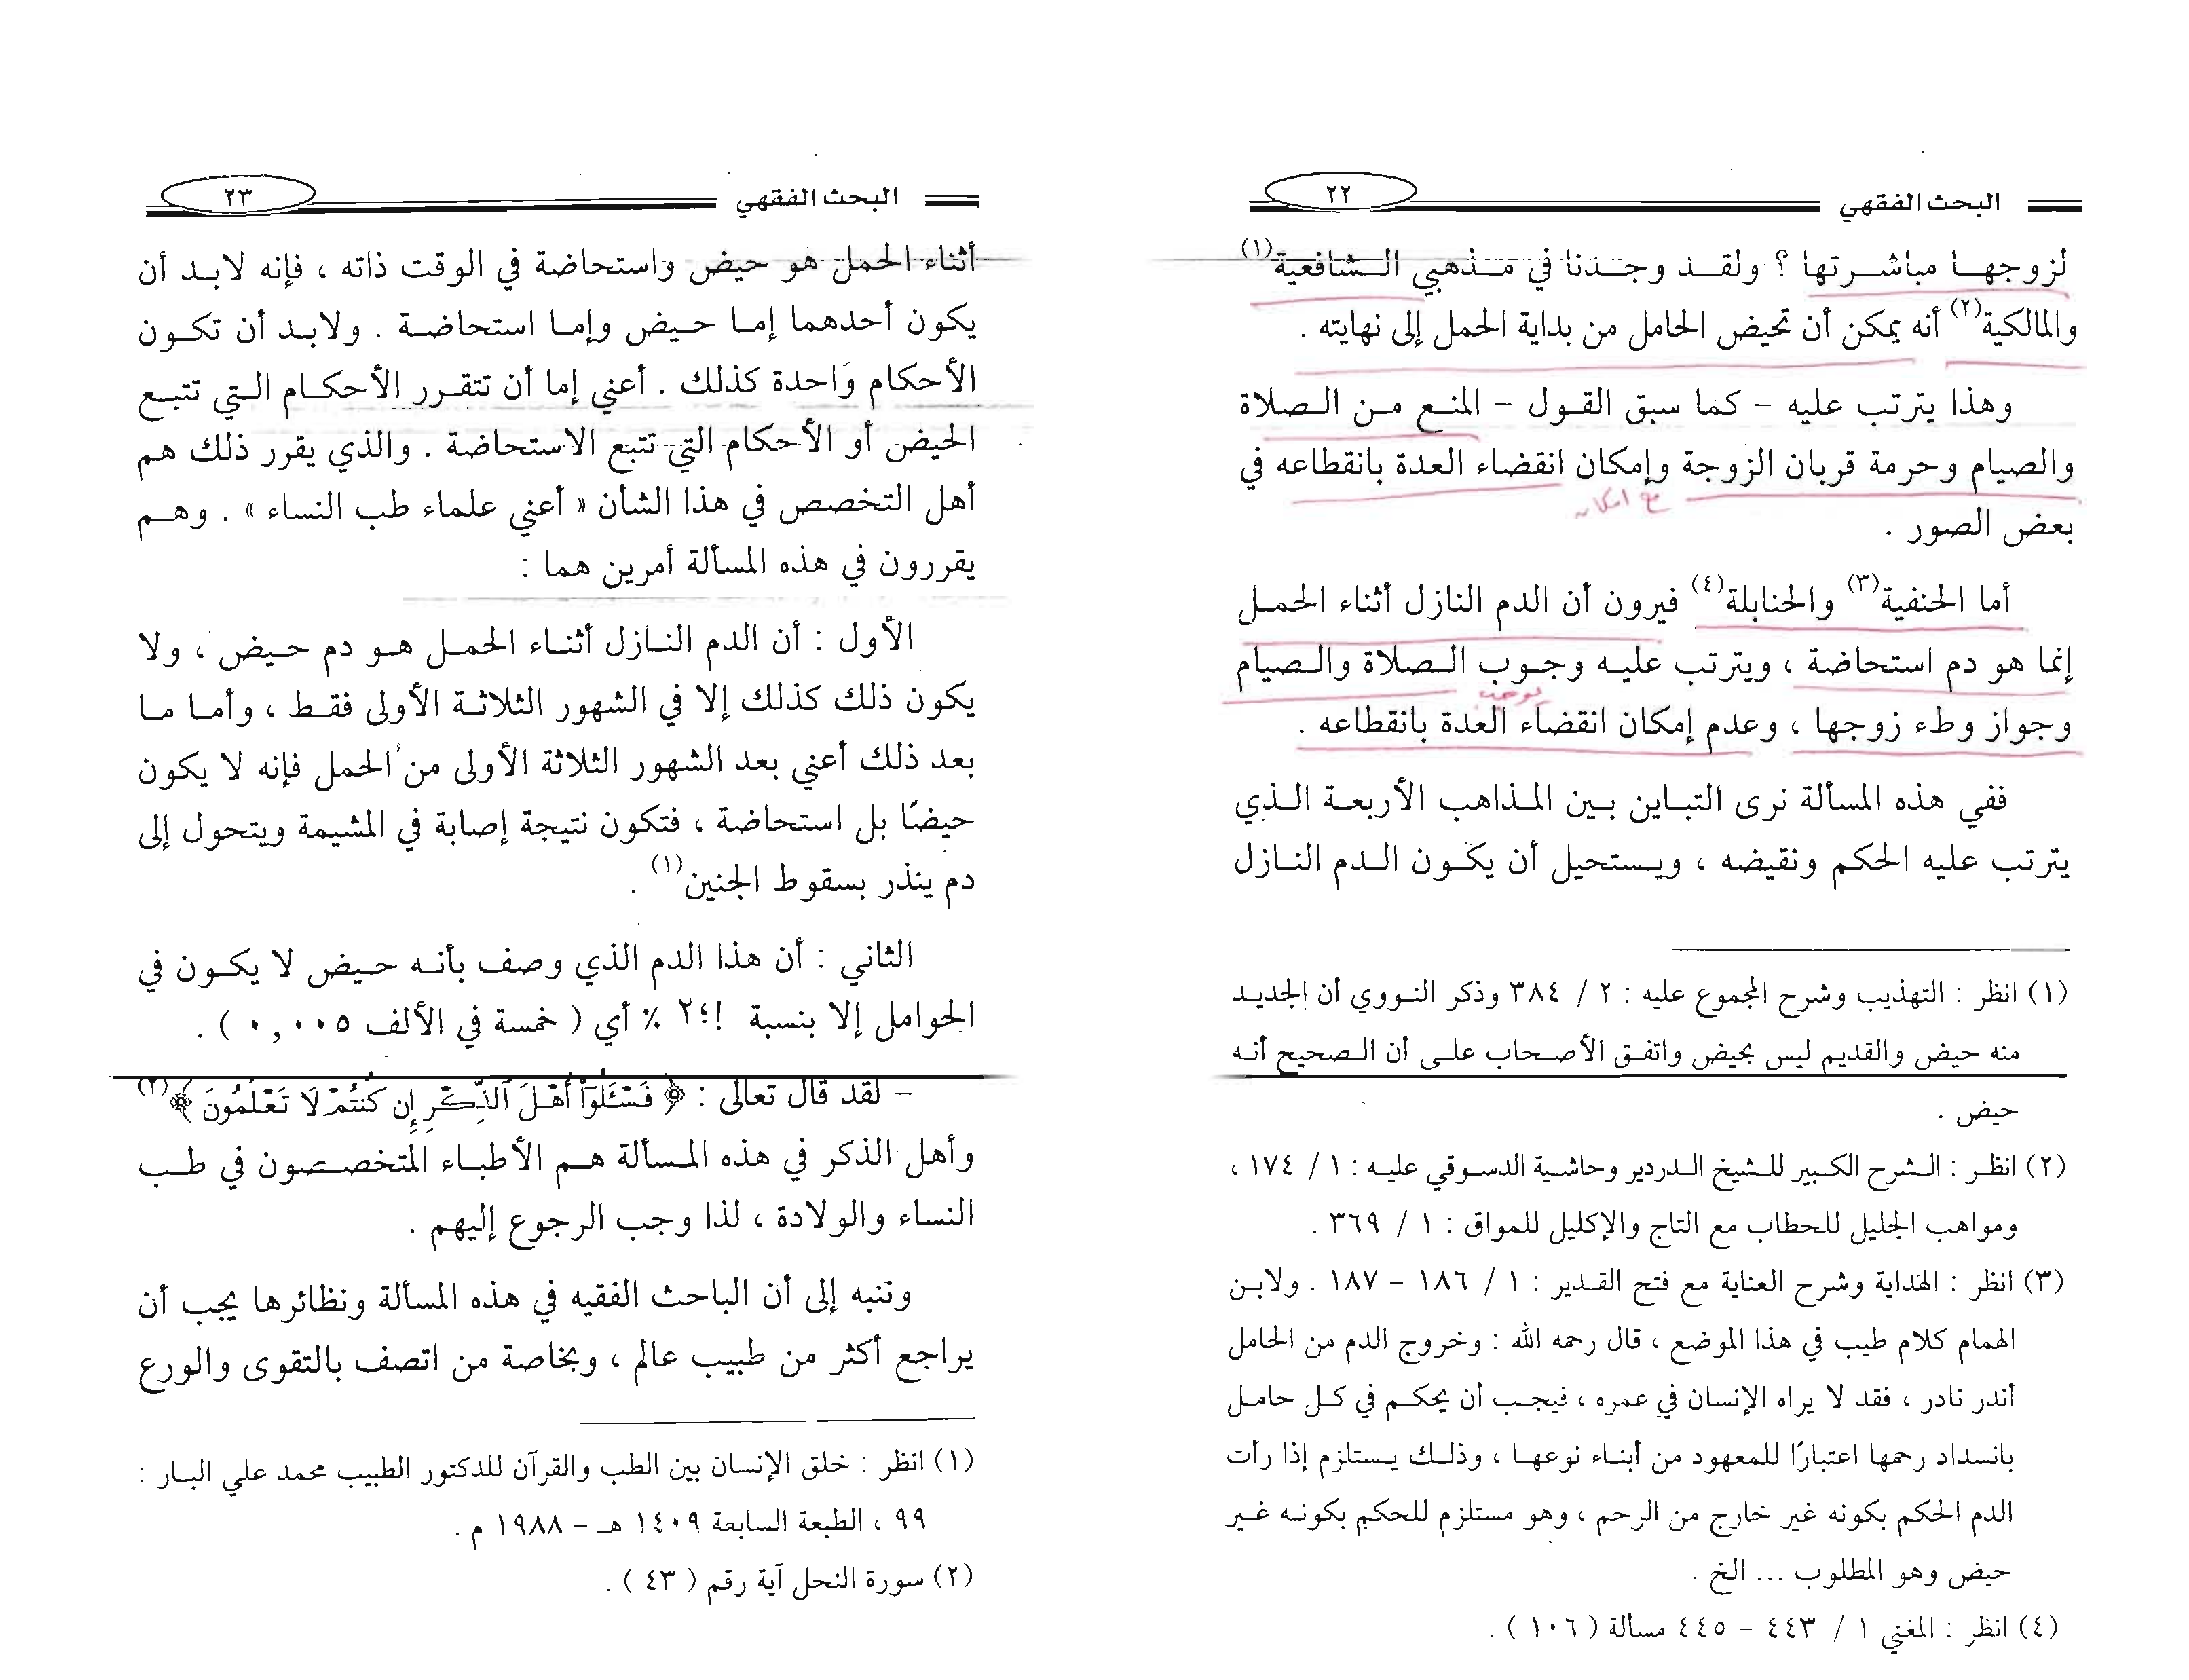 البحث الفقهي ٢٢
لزوجها مباشرتها ؟ ولقد وجدنا في مذهبي الشافعية(١)
والمالكية(٢) أنه يمكن أن تحيض الحامل من بداية الحمل إلى نهايته .
وهذا يترتب عليه – كما سبق القول – المنع من الصلاة
والصيام وحرمة قربان الزوجة وإمكان انقضاء العدة بانقطاعه في
بعض الصور .
أما الحنفية(٣) والحنابلة(٤) فيرون أن الدم النازل أثناء الحمل
إنما هو دم استحاضة ، ويترتب عليه وجوب الصلاة والصيام
وجواز وطء زوجها ، وعدم إمكان انقضاء العدة بانقطاعه .
ففي هذه المسألة نرى التباين بين المذاهب الأربعة الذي
يترتب عليه الحكم ونقيضه ، ويستحيل أن يكون الدم النازل
(١) انظر : التهذيب وشرح المجموع عليه : ٢ / ٣٨٤ وذكر النووي أن الجديد
منه حيض والقديم ليس بحيض واتفق الأصحاب على أن الصحيح أنه
حيض .
(٢) انظر : الشرح الكبير للشيخ الدردير وحاشية الدسوقي عليه : ١ / ١٧٤ ،
ومواهب الجليل للحطاب مع التاج والإكليل للمواق : ١ / ٣٦٩ .
(٣) انظر : الهداية وشرح العناية مع فتح القدير : ١ / ١٨٦ – ١٨٧ . ولابن
الهمام كلام طيب في هذا الموضع ، قال رحمه الله : وخروج الدم من الحامل
أندر نادر ، فقد لا يراه الإنسان في عمره ، فيجب أن يحكم في كل حامل
بانسداد رحمها اعتبارًا للمعهود من أبناء نوعها ، وذلك يستلزم إذا رأت
الدم الحكم بكونه غير خارج من الرحم ، وهو مستلزم للحكم بكونه غير
حيض وهو المطلوب ... الخ .
(٤) انظر : المغني ١ / ٤٤٣ – ٤٤٥ مسألة ( ١٠٦ ) .
البحث الفقهي ٢٣
أثناء الحمل هو حيض واستحاضة في الوقت ذاته ، فإنه لابد أن
يكون أحدهما إما حيض وإما استحاضة . ولابد أن تكون
الأحكام واحدة كذلك . أعني إما أن تتقرر الأحكام التي تتبع
الحيض أو الأحكام التي تتبع الاستحاضة . والذي يقرر ذلك هم
أهل التخصص في هذا الشأن « أعني علماء طب النساء » . وهم
يقررون في هذه المسألة أمرين هما :
الأول : أن الدم النازل أثناء الحمل هو دم حيض ، ولا
يكون ذلك كذلك إلا في الشهور الثلاثة الأولى فقط ، وأما ما
بعد ذلك أعني بعد الشهور الثلاثة الأولى من الحمل فإنه لا يكون
حيضًا بل استحاضة ، فتكون نتيجة إصابة في المشيمة ويتحول إلى
دم ينذر بسقوط الجنين(١) .
الثاني : أن هذا الدم الذي وصف بأنه حيض لا يكون في
الحوامل إلا بنسبة !؛٢ ٪ أي ( خمسة في الألف ٠,٠٠٥ ) .
– لقد قال تعالى : ﴿ فَسْـَٔلُوٓا۟ أَهْلَ ٱلذِّكْرِ إِن كُنتُمْ لَا تَعْلَمُونَ ﴾(٢)
وأهل الذكر في هذه المسألة هم الأطباء المتخصصون في طب
النساء والولادة ، لذا وجب الرجوع إليهم .
وتنبه إلى أن الباحث الفقيه في هذه المسألة ونظائرها يجب أن
يراجع أكثر من طبيب عالم ، وبخاصة من اتصف بالتقوى والورع
(١) انظر : خلق الإنسان بين الطب والقرآن للدكتور الطبيب محمد علي البار :
٩٩ ، الطبعة السابعة ١٤٠٩ هـ – ١٩٨٨ م .
(٢) سورة النحل آية رقم ( ٤٣ ) .